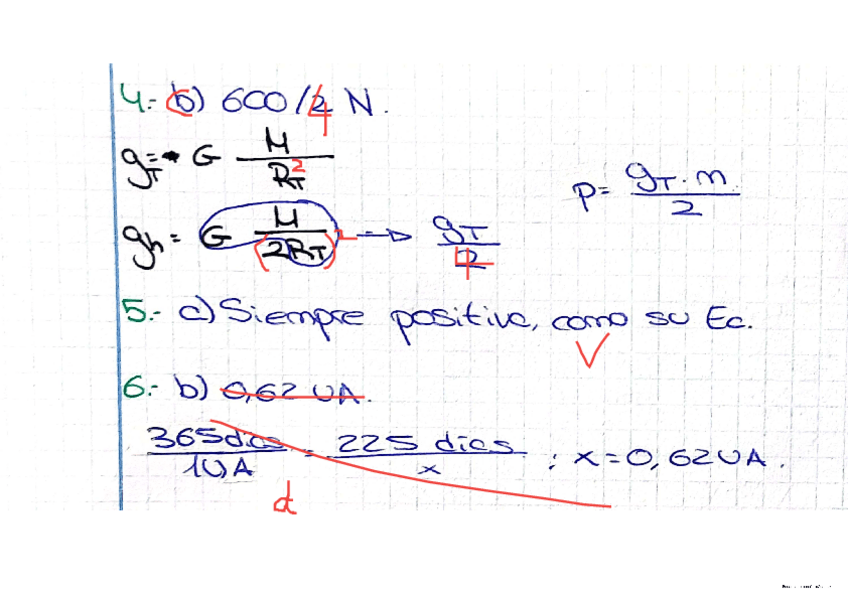 4.- b) 600/4 N.
g_T = G M / R_T^2
p = g_T · m / 2
g_h = G M / (2R_T)^2 → g_T / 4
5.- c) Siempre positiva, como su Ec.
6.- b) 0,62 UA.
365 dias / 1UA = 225 dias / x ; x = 0,62 UA.
d